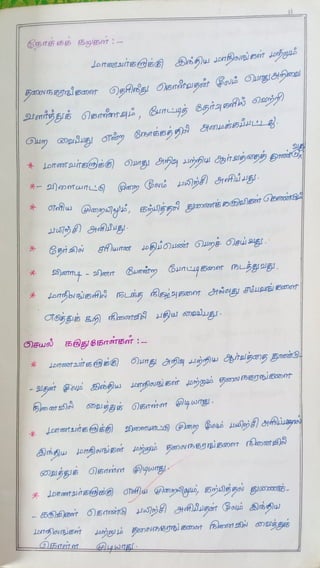 நோக்கக் கூறுகள் :-
மாணவர்களுக்கு இந்திய மாநிலங்கள் மற்றும்
தலைநகரங்களை தெரிந்து கொள்வதன் மூலம் பொது அறிவை
வளர்த்துக் கொள்ளவும், போட்டித் தேர்வுகளில் வெற்றி
பெற வைப்பது என்ற நோக்கத்தில் அமைக்கப்பட்டது.
* மாணவர்களுக்கு பொது அறிவு பற்றிய ஆர்வத்தைத் தூண்டுவது
* - விளையாட்டு முறை மூலம் பயிற்சி அளிப்பது.
* எளிய முறையிலும், கற்பித்தல் துணைக்கருவிகள் கொண்டும்
பயிற்சி அளிப்பது.
* தேர்வில் சரியான மதிப்பெண் பெறச் செய்வது.
* வினாடி - வினா போன்ற போட்டிகளை நடத்துவது.
* மாநிலங்களில் நடந்த நிகழ்வுகளை அல்லது சம்பவங்களை
எடுத்துக் கூறி நினைவில் பதிய வைப்பது.
செயல் கருதுகோள்கள் :-
* மாணவர்களுக்கு பொது அறிவு பற்றிய ஆர்வத்தை தூண்டு-
- வதன் மூலம் இந்திய மாநிலங்கள் மற்றும் தலைநகரங்களை
நினைவில் வைத்துக் கொள்ள முடியாது.
* மாணவர்களுக்கு விளையாட்டு முறை மூலம் பயிற்சி அளிப்பதால்
இந்திய மாநிலங்கள் மற்றும் தலைநகரங்களை நினைவில்
வைத்துக் கொள்ள முடியாது.
* மாணவர்களுக்கு எளிய முறையிலும், கற்பித்தல் துணைக்-
- கருவிகள் கொண்டு பயிற்சி அளிப்பதன் மூலம் இந்திய
மாநிலங்கள் மற்றும் தலைநகரங்களை நினைவில் வைத்துக்
கொள்ள முடியாது.